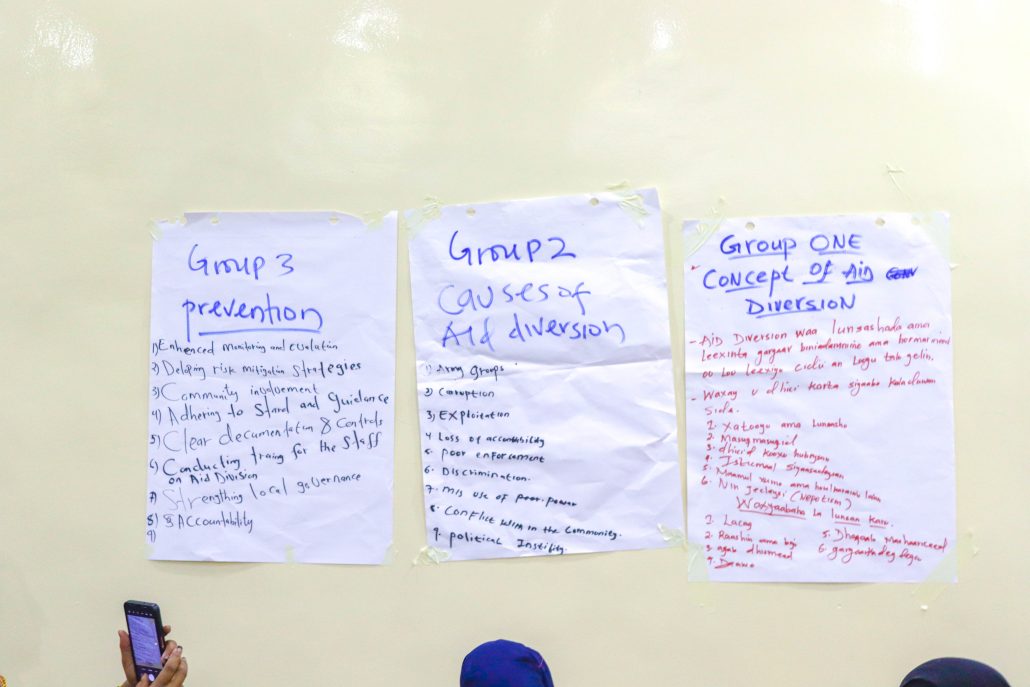 Group 3
prevention
1) Enhanced monitoring and evalution
2) risk mitigation strategies
3) Community involvement
4) Adhering to Stand and guidance
5) Clear documentation & controls
6) Conducting traing for the staff
on Aid Division
7) Strengthing local governance
8) & Accountability
9)
Group 2
Causes of
AId diversion
1) Army groups
2) Coruption
3) EXploitation
4 Loss of accountability
5. poor enforcement
6. Discrimination.
7. mis use of poor. power
8. Conflict in the Community.
9. political Instility.
Group ONE
CONCEPT OF AID
DIVERSION
- AiD Diversion waa lunsashada ama
leexinta gargaar ama
oo loo leexiyo cidii an loogu tala gelin.
- Waxay u dhici karta siyaabo kala duwan
sida.
1. Xatooyo ama Lunsasho
2. Masuqmasuqid
3. dhicid
4. Isticmaal
5. ama
6. Nin jeclaysi (Nepotism)
Waxyaabaha la lunsan karo.
1. Lacag
2. Raashin ama
3. agab
4. Daawo
5. Dhagaalo
6. gargaarka deg dega